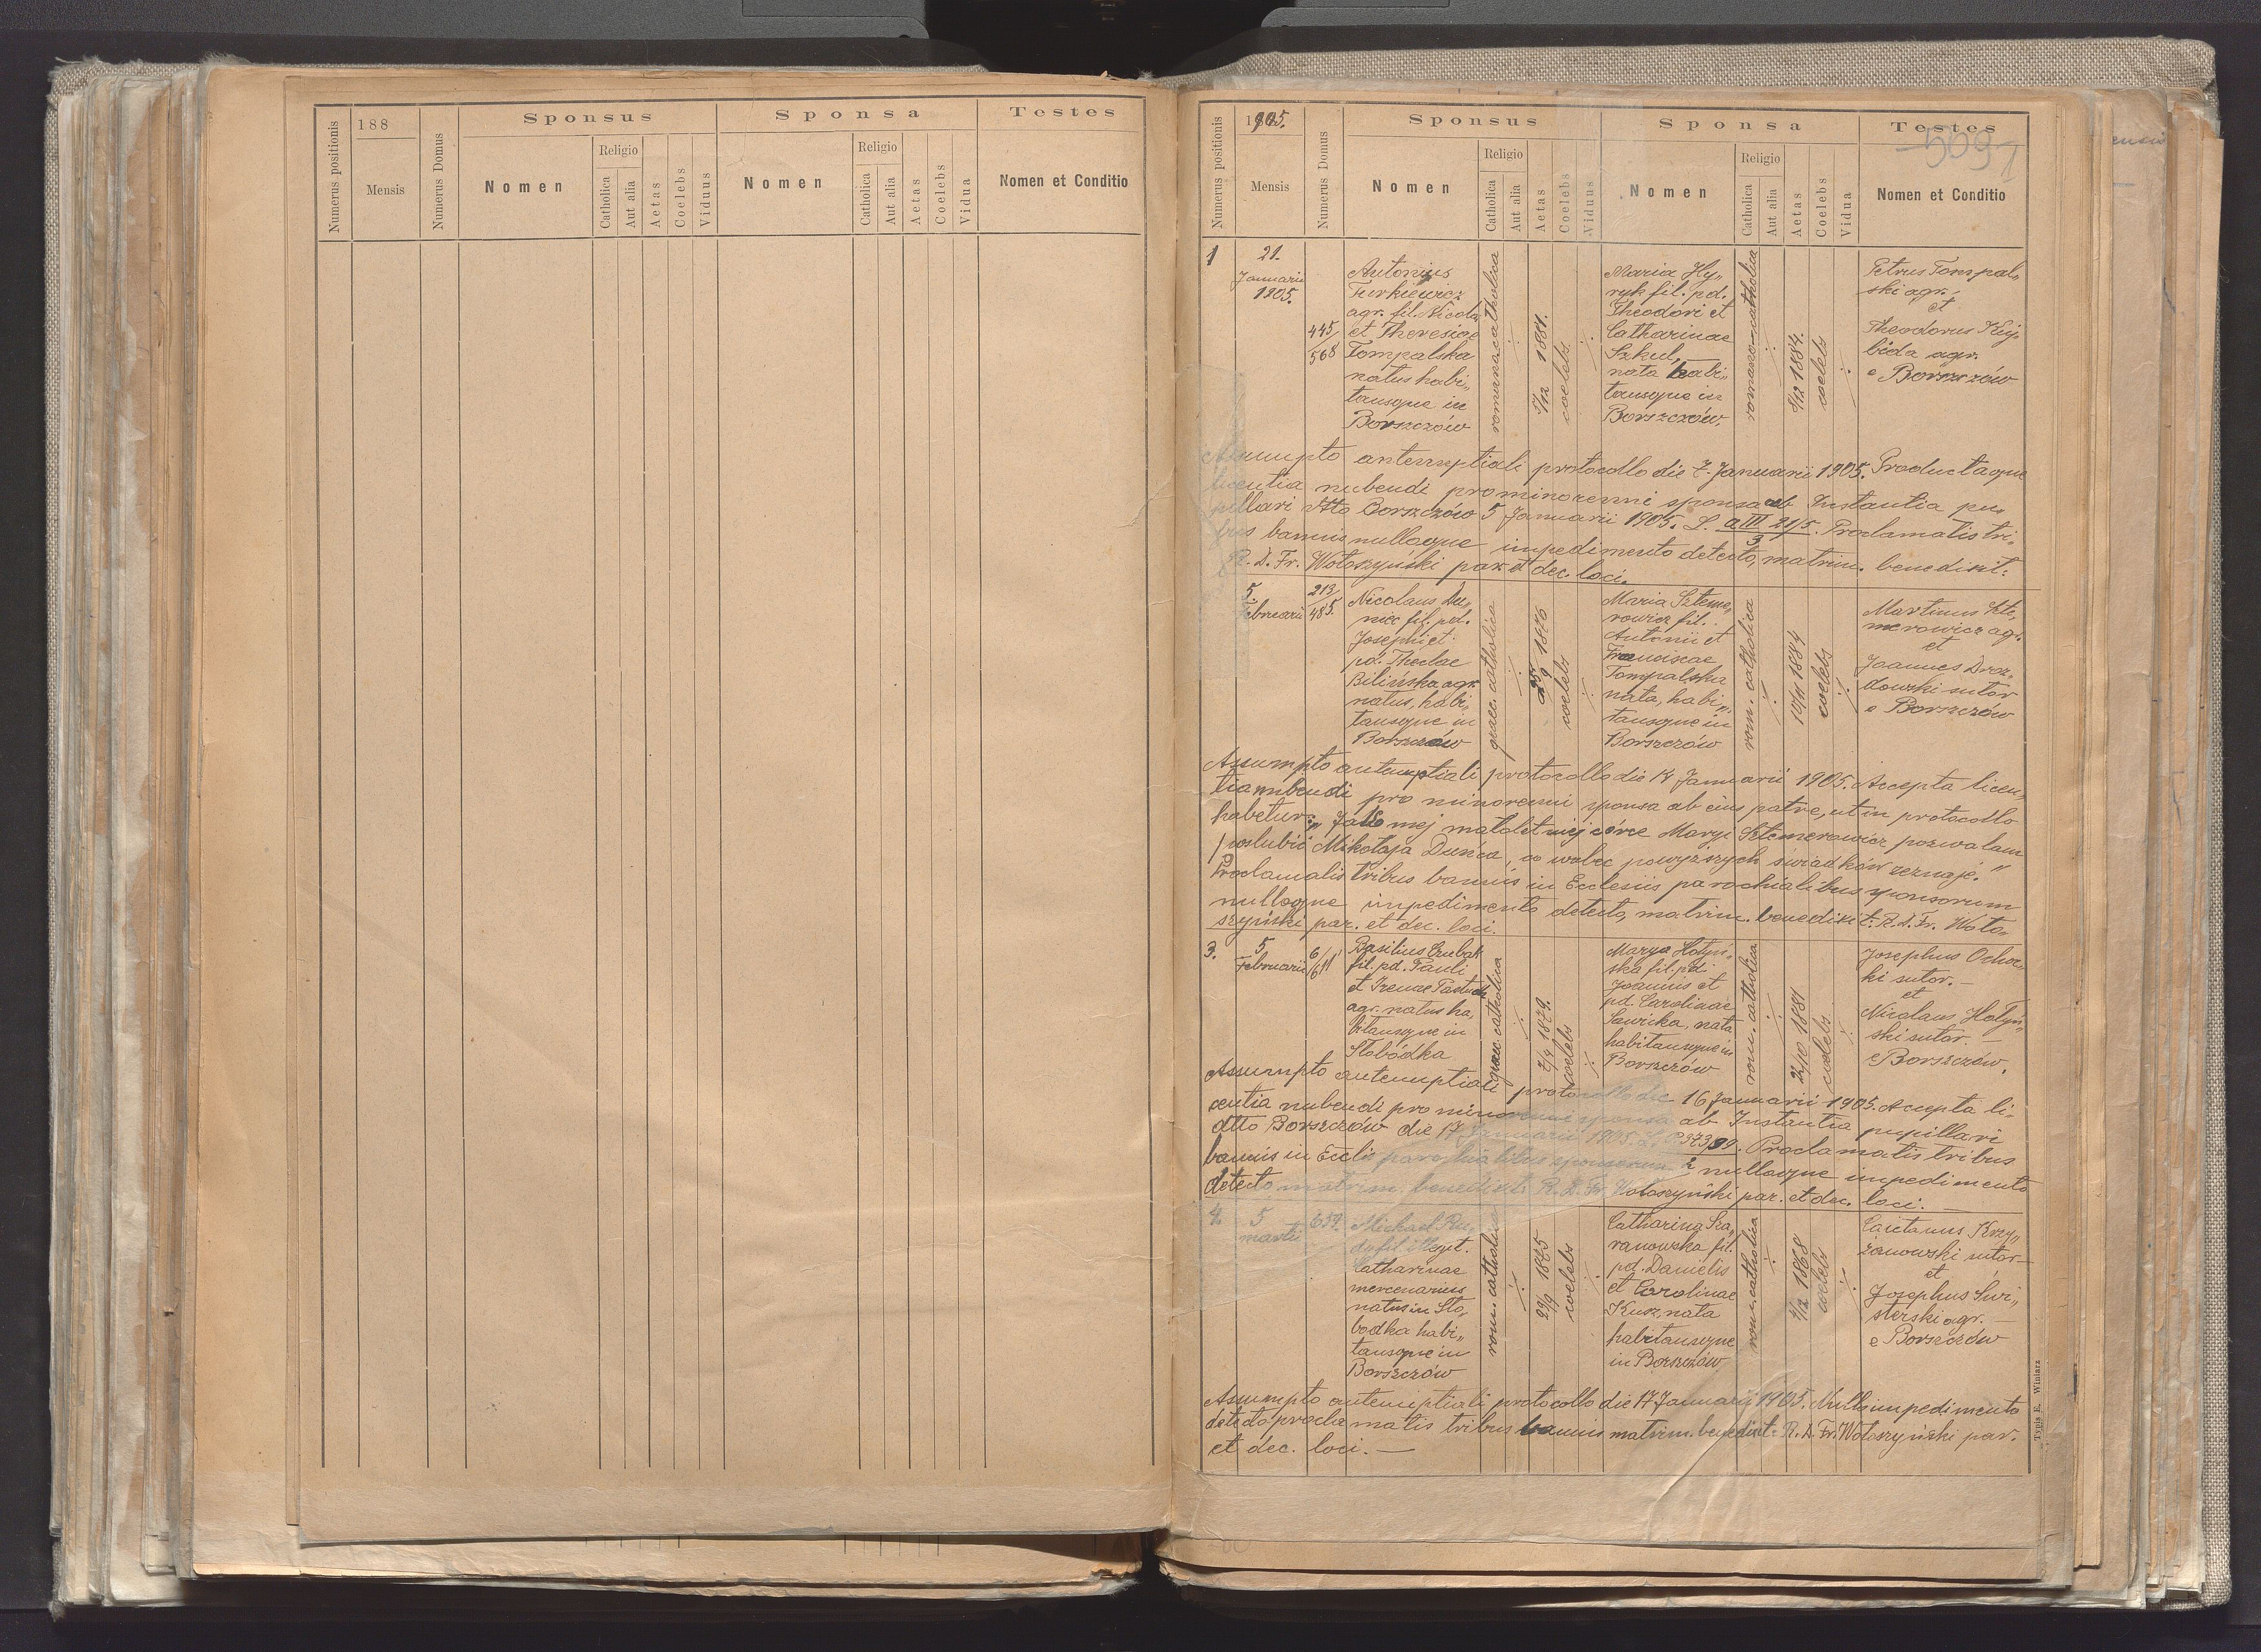 Numerus positionis
188
Mensis
Numerus Domus
Sponsus
Nomen
Religio
Catholica
Aut alia
Aetas
Coelebs
Viduus
Sponsa
Nomen
Religio
Catholica
Aut alia
Aetas
Coelebs
Vidua
Testes
Nomen et Conditio
Numerus positionis
1905.
Mensis
Numerus Domus
Sponsus
Nomen
Religio
Catholica
Aut alia
Aetas
Coelebs
Viduus
Sponsa
Nomen
Religio
Catholica
Aut alia
Aetas
Coelebs
Vidua
Testes
Nomen et Conditio
1
21.
Januarii
1905.
445/
568
Antonius
Turkiewicz
agr. fil. Nicolai
et Theresiae
Tompalska
natus habi„
tansque in
Borszczów
romana catholica
5/12 1881.
coelebs
Maria Hy„
ryk fil. pd.
Theodori et
Catharinae
Szkul,
nata habi„
tansque in
Borszczów.
romano-catholica
8/12 1884.
coelebs
Petrus Tompal„
ski agr.
et
Theodorus Kij„
bida agr.
e Borszczów
Assumpto antenuptiali protocollo die 7. Januarii 1905. Productaque
licentia nubendi pro minorenni sponsa ab Instantia pu„
pillari dtto Borszczów 5 Januarii 1905. L. a III 21/5/3. Proclamatis tri„
bus bannis nulloque impedimento detecto, matrim. benedixit:
R. D. Fr. Wołoszyński par. et dec. loci.
5.
Februarii
213/
485.
Nicolaus Du„
niec fil. pd.
Josephi et
pd. Theclae
Bilińska agr.
natus, habi„
tansque in
Borszczów
graec. catholica
coelebs
Maria Szteme„
rowicz fil.
Antonii et
Franciscae
Tompalska
nata, habi„
tansque in
Borszczów
rom. catholica
10/11 1884
coelebs
Martinus Szte„
merowicz agr.
et
Joannes Droz„
dowski sutor
e Borszczów
Assumpto antenuptiali protocollo die 14 Januarii 1905. Accepta licen„
tia nubendi pro minorenni sponsa ab eius patre, ut in protocollo
habetur: „Ja mej małoletniej córce Maryi Sztemerowicz pozwalam
poslubić Mikołaja Duńca, co wobec powyższych świadków zeznaję."
Proclamatis tribus bannis in Ecclesiis parochialibus sponsorum
nulloque impedimento detecto, matrim. benedixit: R. D. Fr. Woło„
szyński par. et dec. loci.
3.
5
Februarii
6/
611
Basilius Czubak
fil. pd. Pauli
et Irenae Pastuch
agr. natus ha„
bitansque in
Słobódka
graec. catholica
2/4 1879.
coelebs
Marya Hołyń„
ska fil. pd.
Joannis et
pd. Carolinae
Sawicka, nata
habitansque in
Borszczów
rom. catholica
2/10 1881
coelebs
Josephus Ochoc„
ki sutor. —
et
Nicolaus Hołyń„
ski sutor. —
e Borszczów.
Assumpto antenuptiali protocollo die 16 Januarii 1905. Accepta li„
centia nubendi pro minorenni sponsa ab Instantia pupillari
dtto Borszczów die 17 Januarii 1905. Proclamatis tribus
bannis in Ecclis parochialibus sponsorum nulloque impedimento
detecto matrim. benedixit: R. D. Fr. Wołoszyński par. et dec. loci. —
4.
5
martii
659.
Michael Ru„
dy fil illegit.
Catharinae
mercenarius
natus in Sło„
bodka habi„
tansque in
Borszczów
rom. catholica
29/9 1875
coelebs
Catharina Sza„
ranowska fil.
pd. Danielis
et Carolinae
Kusz, nata
habitansque
in Borszczów
rom. catholica
4/12 1868
coelebs
Caietanus Krzy„
żanowski sutor —
et
Josephus Swi„
sterski agr. —
e Borszczów
Assumpto antenuptiali protocollo die 17 Januarii 1905. Nullo impedimento
detecto proclamatis tribus bannis matrim. benedixit: R. D. Fr. Wołoszyński par.
et dec. loci. —
Typis E. Winiarz